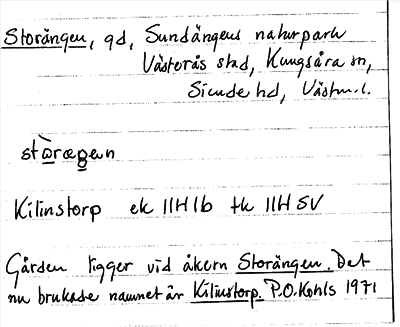 Storängen, gd, Sundängens naturpark
Västerås stad, Kungsåra sn,
Siende hd, Västm. l.
stòrægen
Kilinstorp ek 11H1b tk 11H SV
Gården ligger vid åkern Storängen. Det
nu brukade namnet är Kilinstorp. P.O.Kohls 1971